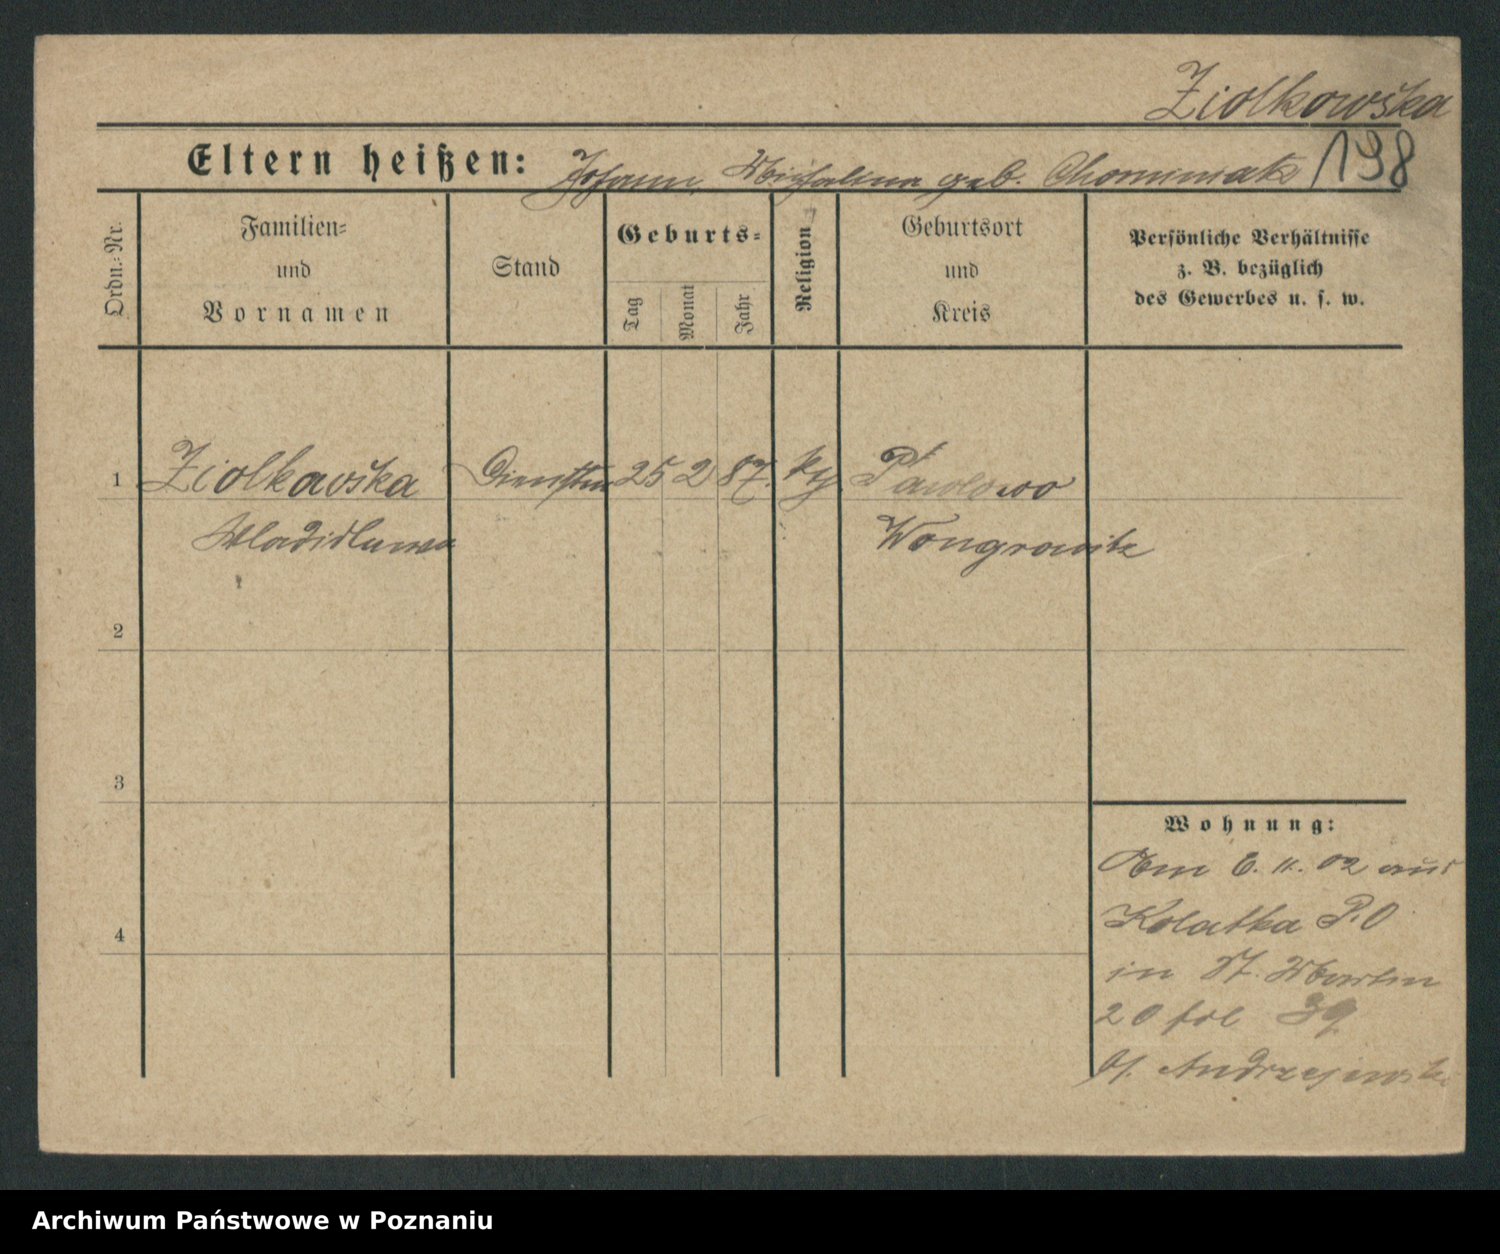 Ziolkowška
198
Eltern heißen: Johann, Michalina geb. Chomimiak
Ordn.-Nr.
Familien-
und
Vornamen
Stand
Geburts-
Tag
Monat
Jahr
Religion
Geburtsort
und
Kreis
Persönliche Verhältnisse
z. B. bezüglich
des Gewerbes u. s. w.
1 Ziolkowška 25 2 87. kth. Pawlowo
Wongrowitz
2
3
4
Wohnung:
Am 6. 11. 02 aus
Kolatka P. O
in St. Martin
20 fol 39
Andrzejewski